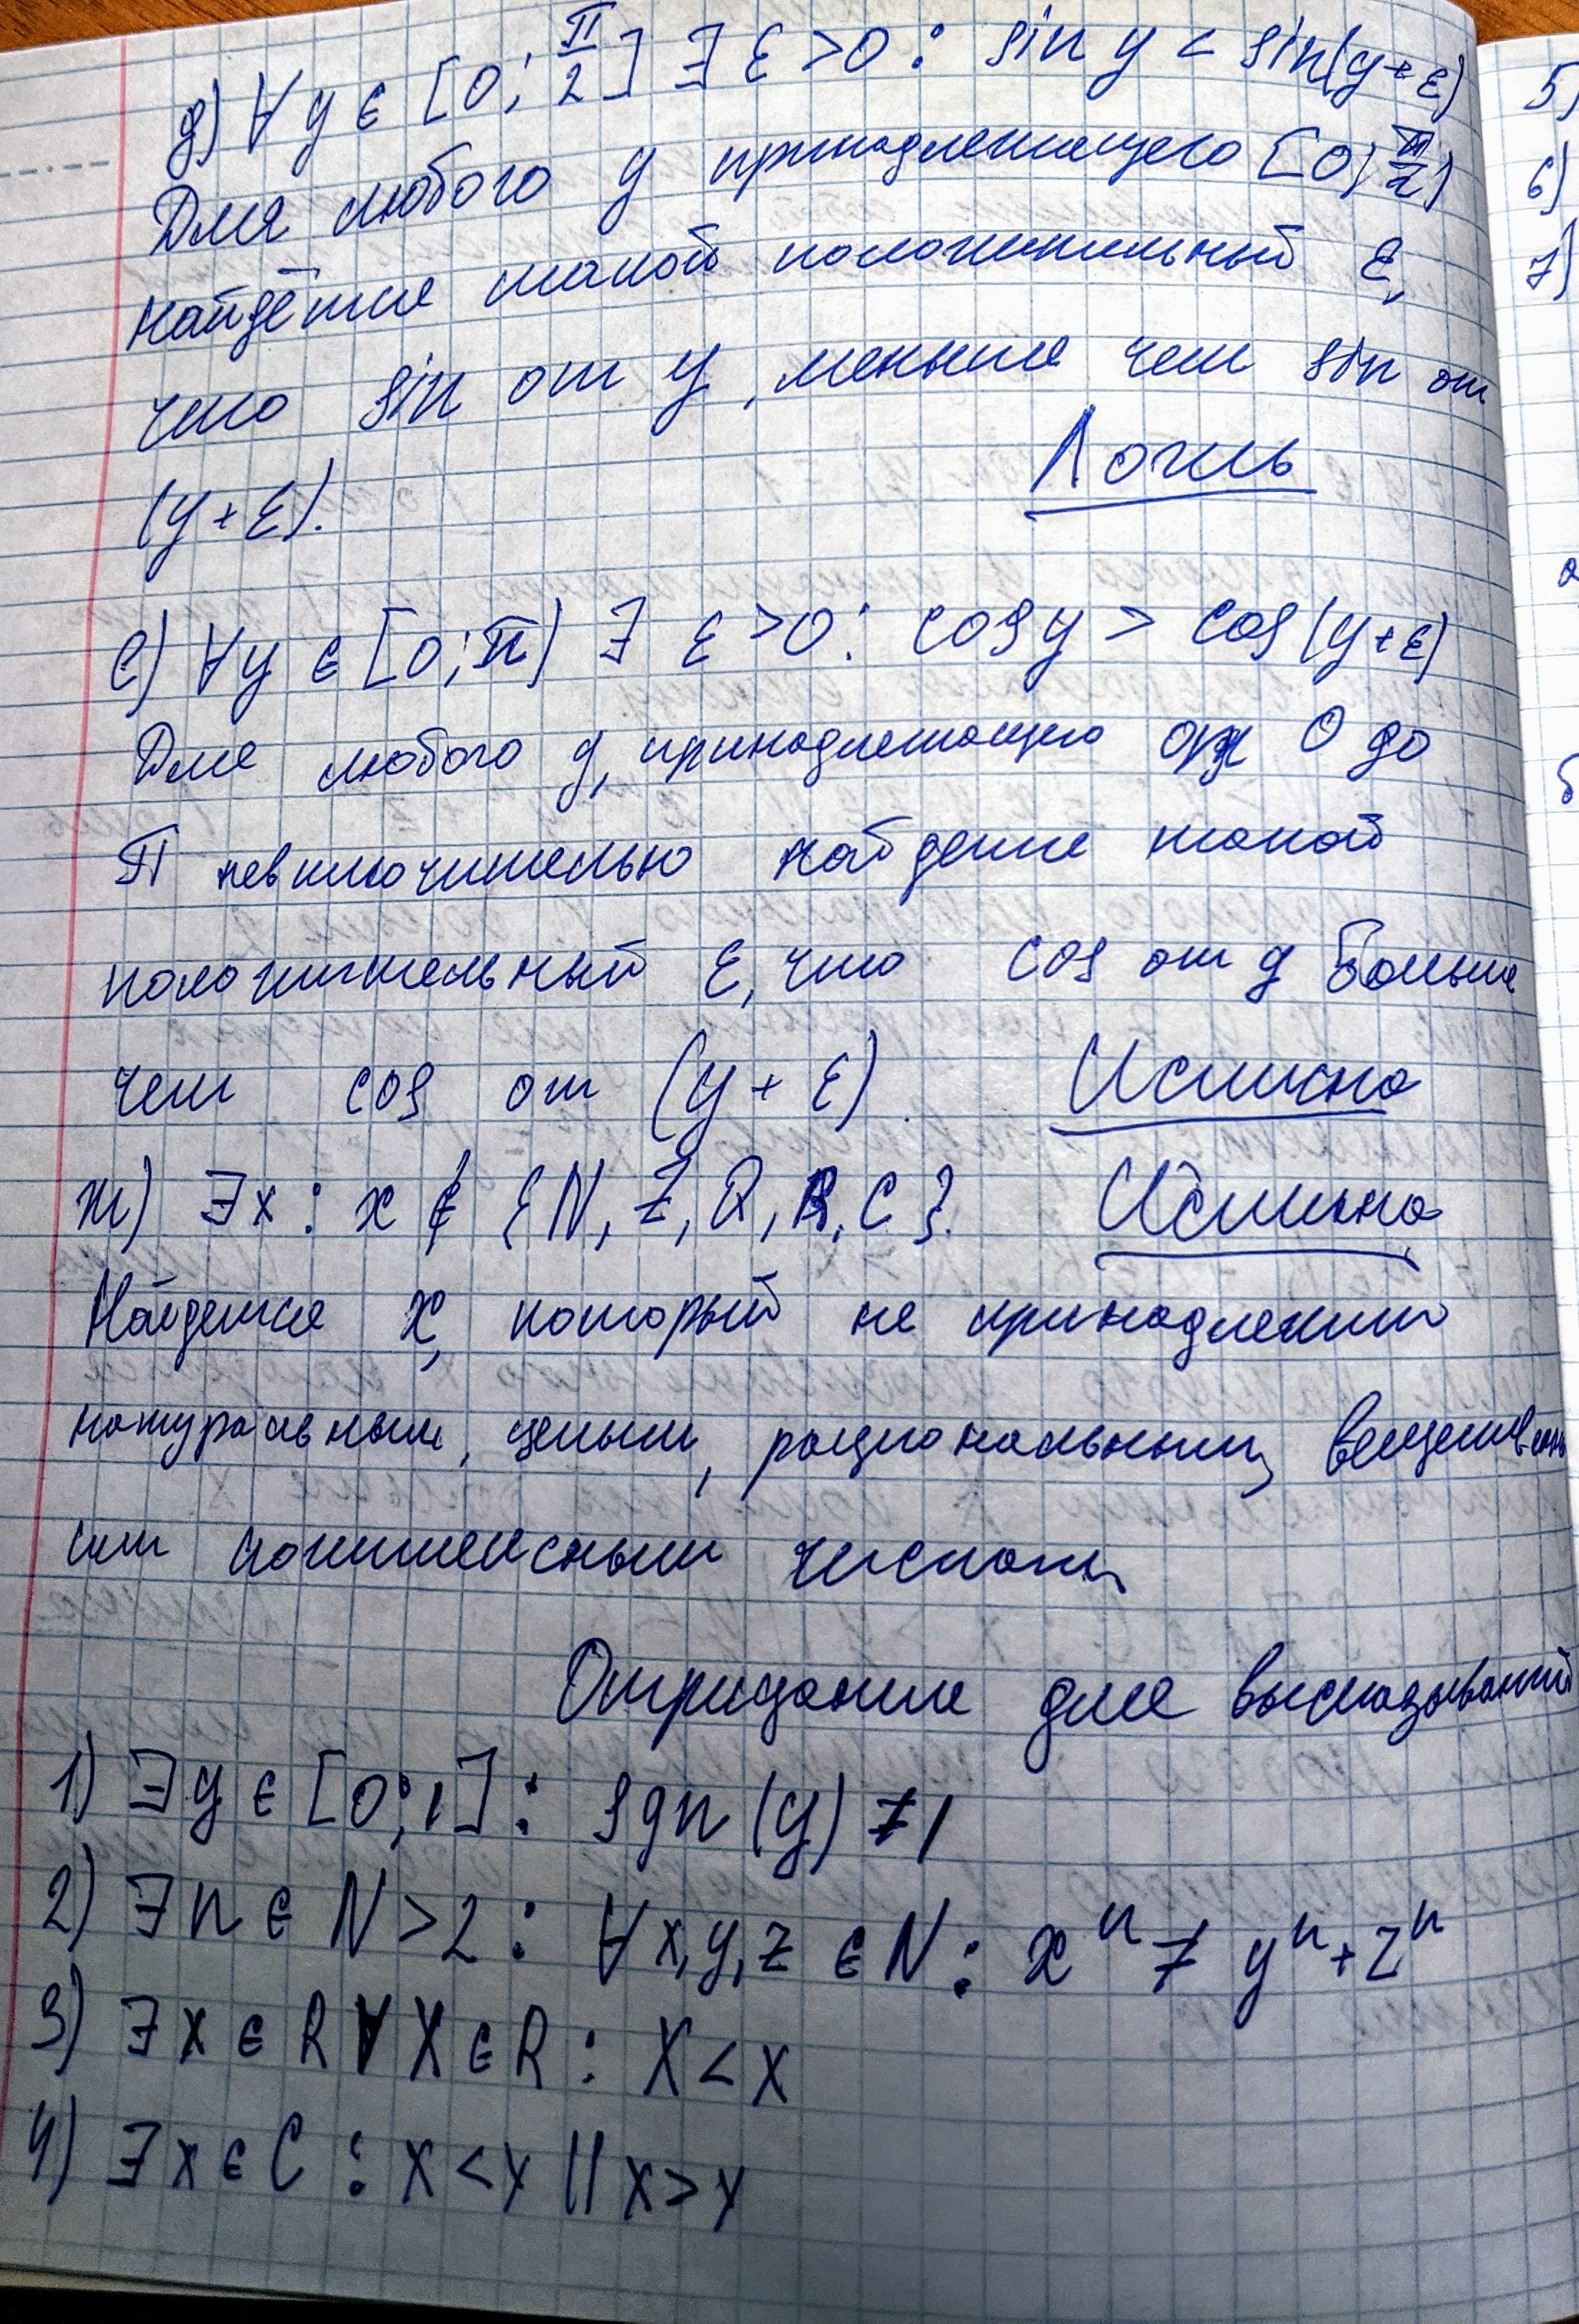 д) ∀ y ∈ [0; π/2] ∃ ε > 0 : sin y < sin(y + ε)
Для любого y принадлежащего [0; π/2)
найдётся такой положительный ε,
что sin от y, меньше чем sin от
(y + ε). Ложь
е) ∀ y ∈ [0; π) ∃ ε > 0 : cos y > cos (y + ε)
Для любого y, принадлежащего от 0 до
π невключительно найдется такой
положительный ε, что cos от y больше
чем cos от (y + ε). Истинно
ж) ∃ x : x ∉ {N, Z, Q, R, C}. Истинно
Найдется x, который не принадлежит
натуральным, целым, рациональным, веществен
или комплексным числам
Отрицание для высказываний
1) ∃ y ∈ [0; 1] : sgn (y) ≠ 1
2) ∃ n ∈ N > 2 : ∀ x, y, z ∈ N : xⁿ ≠ yⁿ + zⁿ
3) ∃ x ∈ R ∀ X ∈ R : X < x
4) ∃ x ∈ C : x < y || x > y
5)
6)
7)
а
б